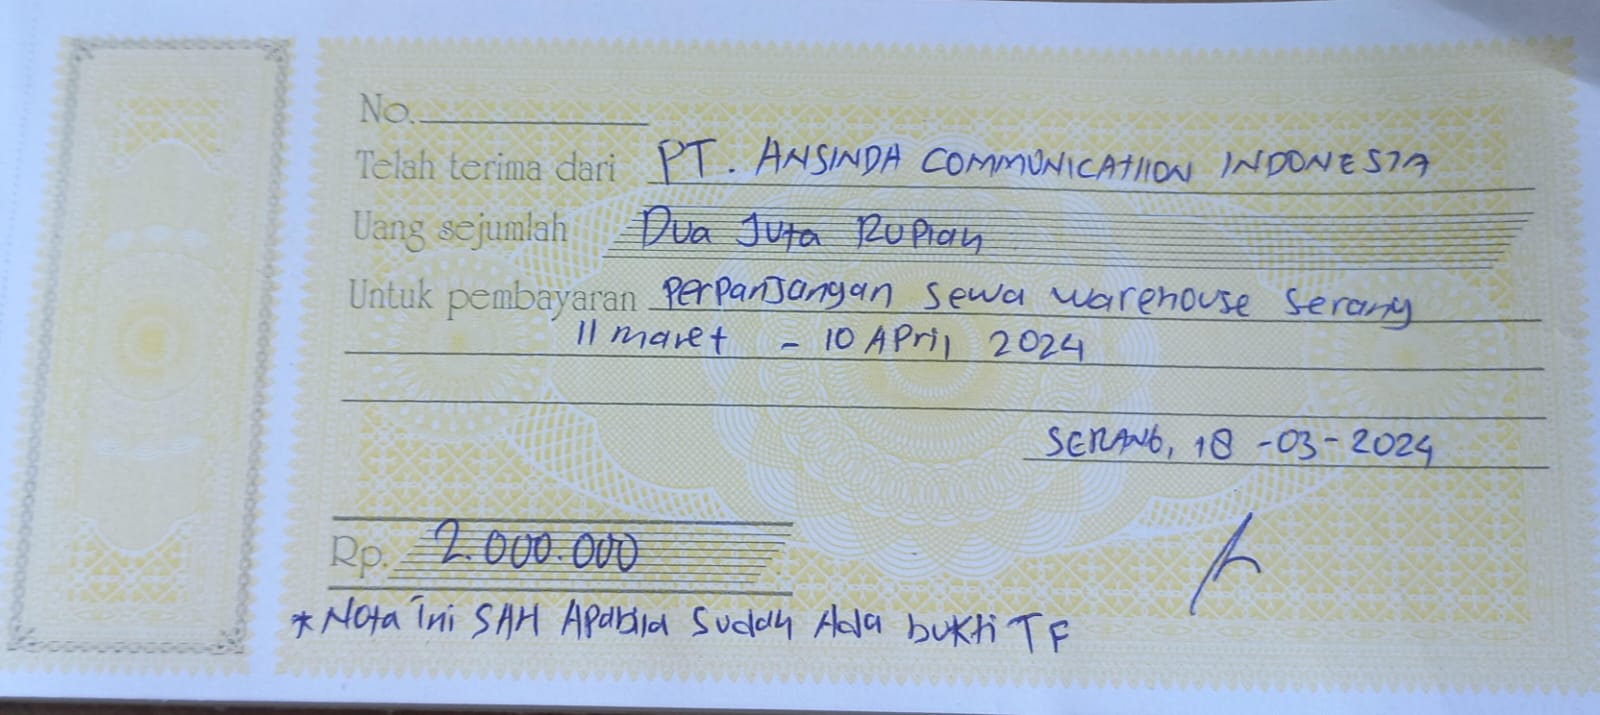 No.
Telah terima dari PT. ANSINDA COMMUNICATIION INDONESIA
Uang sejumlah Dua Juta Rupiah
Untuk pembayaran Perpanjangan sewa warehouse Serang
11 maret - 10 April 2024
SERANG, 18 -03-2024
Rp. 2.000.000
*Nota ini SAH Apabila Sudah Ada bukti TF